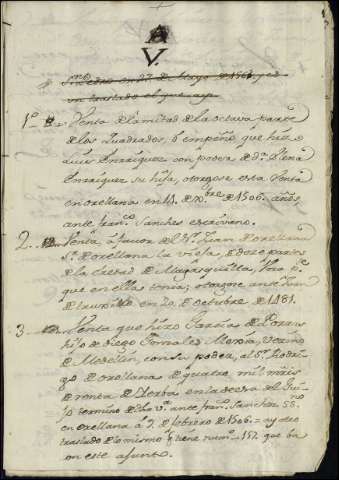 A
V.
1º Venta de la mitad de la octava parte
de los Quadrados, ò empeño que hizo
Luis Enrriquez con poder de Dª Elena
Enrriquez su hija, otorgose esta Venta
en orellana en 11. de Xbre de 1506. años,
ante franco Sanches escrivano.
2. Venta, a favor de Juan de orellana
Sr de orellana la vieja, de doze partes
de la eredad de Majasquilla,
que en ella tenia; otorgose ante
de truxillo en 20. de octubre de 1481.
3. Venta que hizo Garcia de
hijo de Diego Gonzales Mexia, vecino
de Medellin, con su poder, al Sr Rodri-
go de orellana de quatro mil mrs
de renta de Yerba en la dehesa del
termino de dha va ante franco Sanchez SSno
en orellana à 9. de febrero de 1506.= ay otro
traslado de lo mismo q tiene numo 157. que ba
en este asunto.